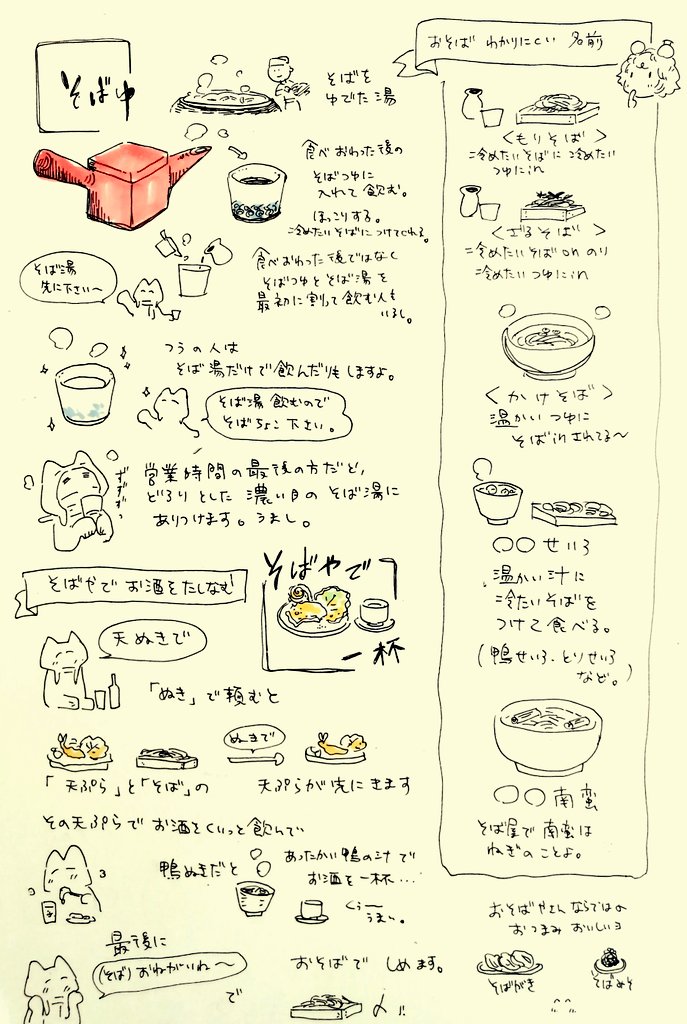 そば湯
そばを
ゆでた湯
食べおわった後の
そばつゆに
入れて飲む。
ほっこりする。
冷めたいそばにつけてくれる。
そば湯
先に下さい〜
食べおわった後ではなく
そばつゆとそば湯を
最初に割って飲む人も
いるし。
つうの人は
そば湯だけで飲んだりもしますよ。
そば湯飲むので
そばちょこ下さい。
ずずずっ
営業時間の最後の方だと、
どろりとした濃い目のそば湯に
ありつけます。うまし。
そばやでお酒をたしなむ
そばやで
一杯
天ぬきで
「ぬき」で頼むと
ぬきで
「天ぷら」と「そば」の
天ぷらが先にきます
その天ぷらでお酒をくいっと飲んで
鴨ぬきだと
あったかい鴨の汁で
お酒を一杯…
くぅ〜
うまい。
最後に
(そば)おねがいね〜
で
おそばでしめます。
〆!!
おそば わかりにくい 名前
<もりそば>
冷めたいそばに冷めたい
つゆにin
<ざるそば>
冷めたいそばonのり
冷めたいつゆにin
<かけそば>
温かいつゆに
そばinされてる〜
〇〇せいろ
温かい汁に
冷たいそばを
つけて食べる。
(鴨せいろ、とりせいろ
など。)
〇〇南蛮
そば屋で南蛮は
ねぎのことよ。
おそばやさんならではの
おつまみおいしいヨ
そばがき
そばみそ